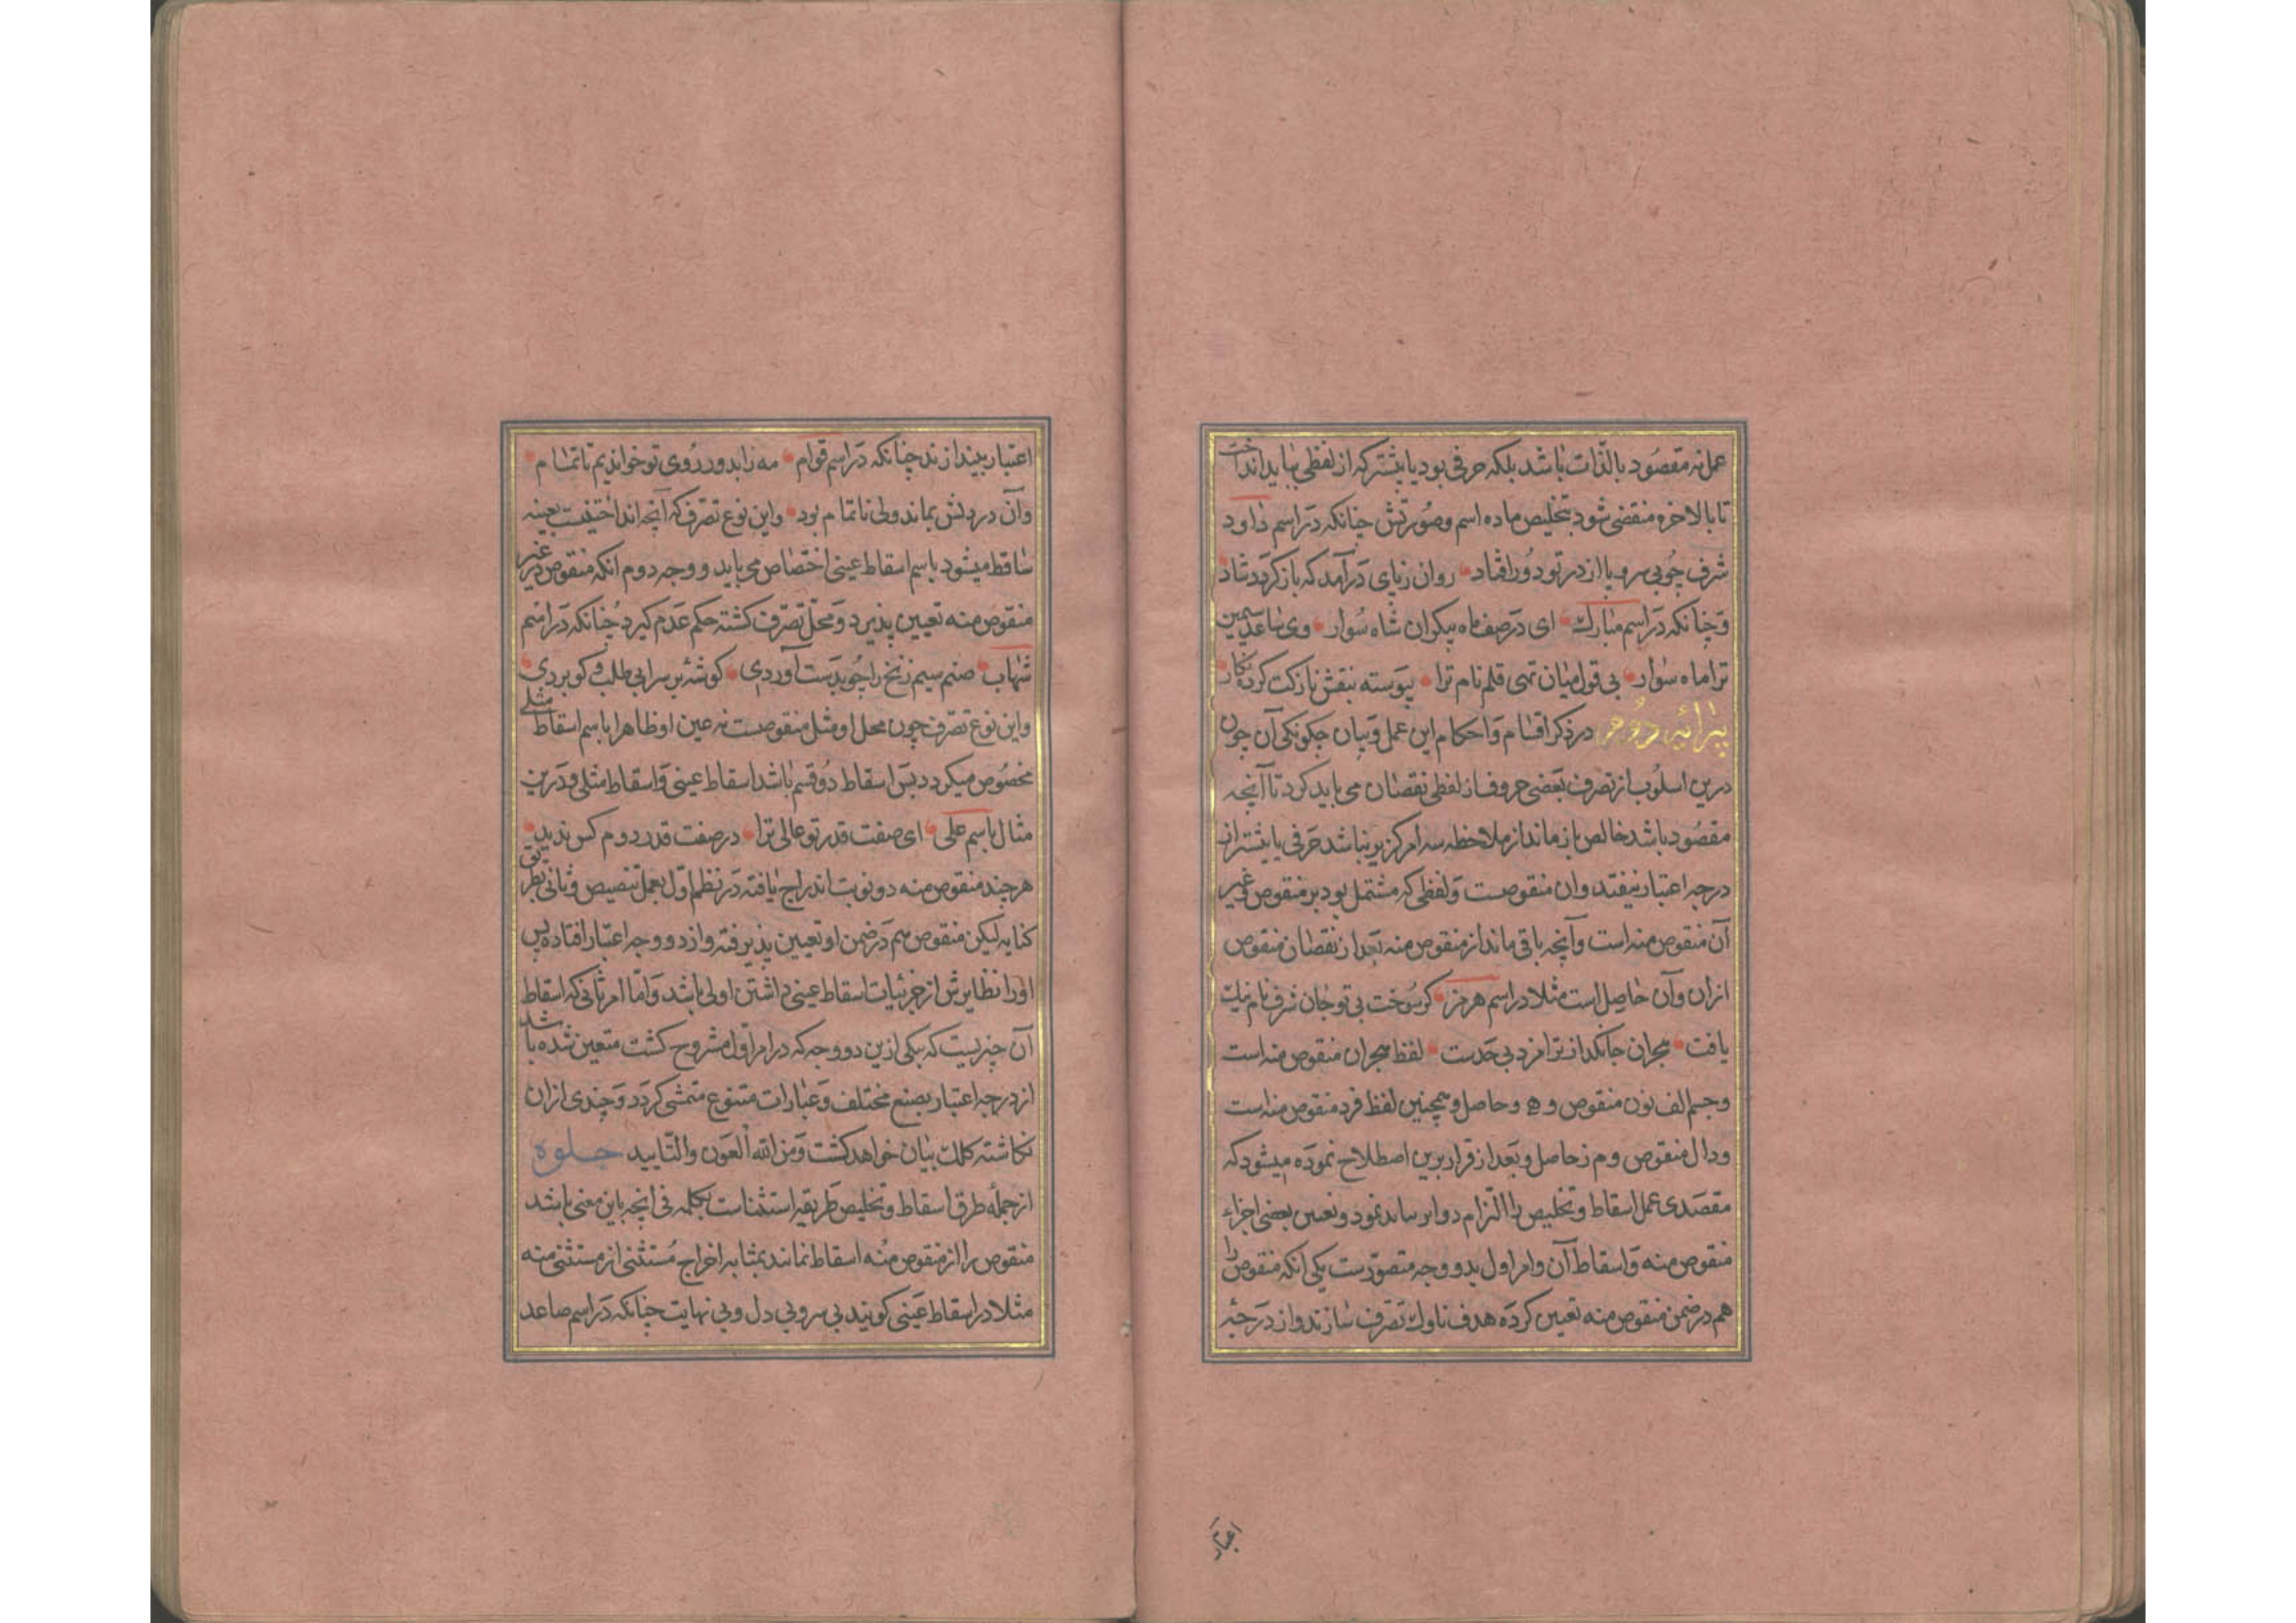 عمل نه مقصود بالذات باشد بلکه حرفی بود یا بیشتر که از لفظی بباید انداخت
تا بالاخره منقضی شود بتخلیص ماده اسم وصورتش چنانکه در اسم داود
شرف چوبی سروپا از در تو دور افتاد روان ز پای در آمد که باز کردد شاد
وچنانکه در اسم مبارک ای در صف ماه پیکران شاه سوار وی ساعد سیمین
ترا ماه سوار بی قول میان تهی قلم نام ترا پیوسته بنقش نازکت کرده نکار
پیرائیه دوم در ذکر اقسام واحکام این عمل وبیان چکونکی آن چون
درین اسلوب از تصرف بعضی حروف از لفظی نقصان می باید کرد تا آنچه
مقصود باشد خالص باز ماند از ملاحظه سه امر کزیر نباشد حرفی یا بیشتر از
درجه اعتبار بیفتد وان منقوصست ولفظی که مشتمل بود بر منقوص وغیر
آن منقوص منه است وآنچه باقی ماند از منقوص منه بعد از نقصان منقوص
ازان وآن حاصل است مثلا در اسم هرمز کر سوخت بی تو جان شرف نام نیک
یافت هجران جانکداز ترا مزد بی حدست لفظ هجران منقوص منه است
وجسم الف نون منقوص و ه ر حاصل وهمچنین لفظ مزد منقوص منه است
ودال منقوص و م ز حاصل وبعد از قرار برین اصطلاح نموده میشود که
مقصدی عمل اسقاط وتخلیص را التزام دو امر بباید نمود وتعیین بعضی اجزاء
منقوص منه واسقاط آن وامر اول بدو وجه متصورست یکی انکه منقوص را
هم در ضمن منقوص منه تعیین کرده هدف ناوک تصرف سازند واز درجه
اعتبار
اعتبار بیندازند چنانکه در اسم قوام مه زاید ور روی تو خواندیم تا تمام
وآن در دلش بماند ولی ناتمام بود واین نوع تصرف که آنچه انداختنیست بعینه
ساقط میشود باسم اسقاط عینی اختصاص می یابد ووجه دوم انکه منقوص در غیر
منقوص منه تعیین پذیرد ومحل تصرف کشته حکم عدم کیرد چنانکه در اسم
شهاب صنم سیم زنخ را چو بدست آوردی کوشهٔ بر سر ابی طلب و کو بردی
واین نوع تصرف چون محل او مثل منقوصست نه عین او ظاهرا باسم اسقاط مثلی
مخصوص میکردد پس اسقاط دو قسم باشد اسقاط عینی واسقاط مثلی ودرین
مثال باسم علی ای صفت قدر تو عالی ترا در صفت قدر دوم کس ندید
هر چند منقوص منه دو نوبت اندراج یافته در نظم اول بعمل تنصیص وثانی بطریق
کنایه لیکن منقوص هم در ضمن او تعیین پذیرفته واز دو وجه اعتبار افتاده پس
اورا نظایرش از جزئیات اسقاط عینی داشتن اولی باشد واما امر ثانی که اسقاط
آن چیزیست که بیکی ازین دو وجه که در امر اول مشروح کشت متعین شده باشد
از درجه اعتبار بصنع مختلف وعبارات متنوع متمشی کردد وچندی ازان
نکاشته کلک بیان خواهد کشت ومن الله العون والتایید جلوه
از جمله طرق اسقاط وتخلیص طریقه استثناست بکلمه فی انچه باین معنی باشد
منقوص را از منقوص منه اسقاط نمایند بمثابه اخراج مستثنی از مستثنی منه
مثلا در اسقاط عینی کویند بی سر وبی دل وبی نهایت چنانکه در اسم صاعد